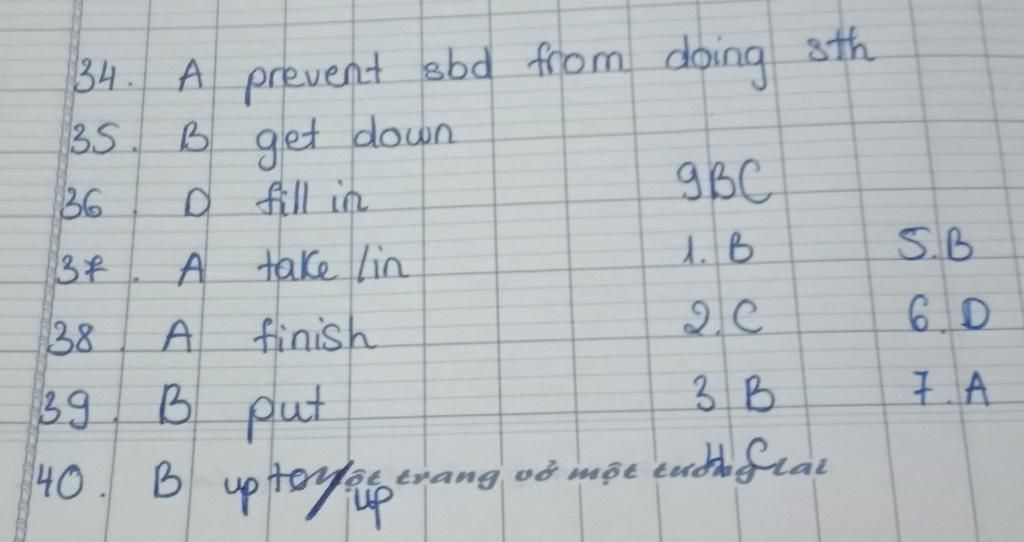 34. A prevent sbd from doing sth
35. B get down
36 D fill in
37. A take / in
38 A finish
39. B put
40. B up to / up
9BC
1. B 5. B
2. C 6. D
3 B 7. A
trang vở một tương lai